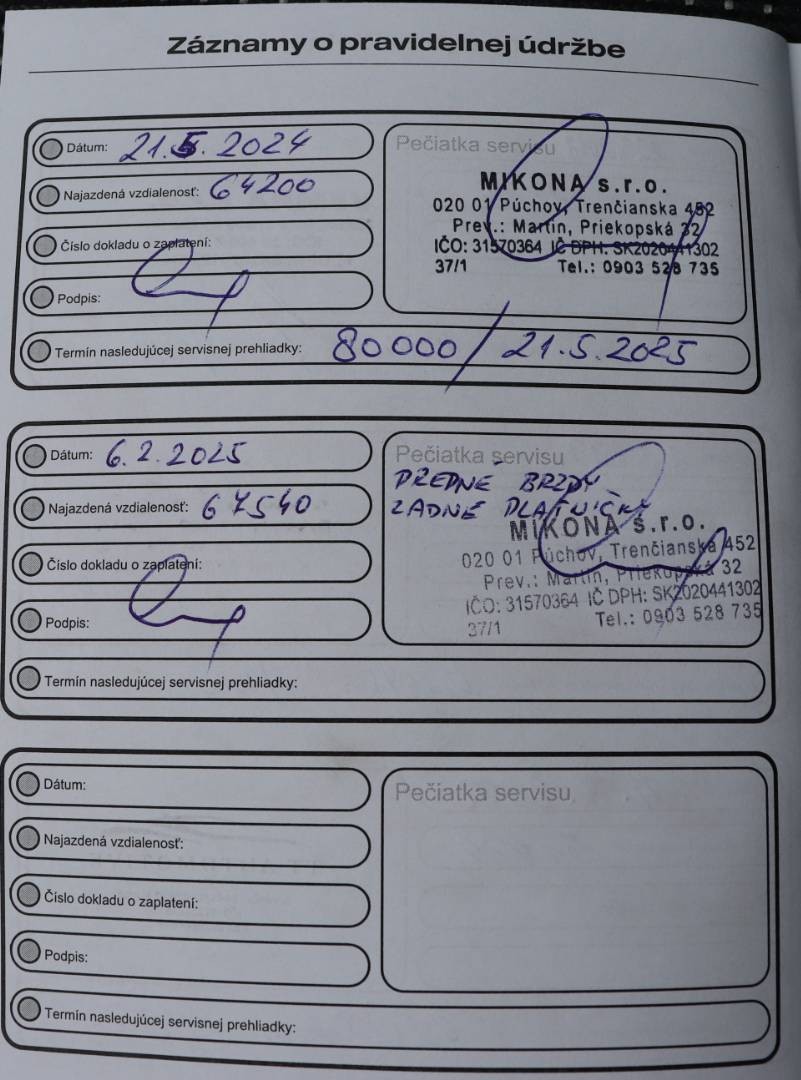 Záznamy o pravidelnej údržbe
Dátum: 21.5.2024
Najazdená vzdialenosť: 64200
Číslo dokladu o zaplatení:
Podpis:
Pečiatka servisu
MIKONA s.r.o.
020 01 Púchov, Trenčianska 452
Prev.: Martin, Priekopská 32
IČO: 31570364 IČ DPH: SK2020441302
37/1 Tel.: 0903 528 735
Termín nasledujúcej servisnej prehliadky: 80000 / 21.5.2025
Dátum: 6.2.2025
Najazdená vzdialenosť: 67540
Číslo dokladu o zaplatení:
Podpis:
Pečiatka servisu
PŘEDNÉ BRZDY
ZADNÉ PLATNIČKY
MIKONA s.r.o.
020 01 Púchov, Trenčianska 452
Prev.: Martin, Priekopská 32
IČO: 31570364 IČ DPH: SK2020441302
37/1 Tel.: 0903 528 735
Termín nasledujúcej servisnej prehliadky:
Dátum:
Najazdená vzdialenosť:
Číslo dokladu o zaplatení:
Podpis:
Pečiatka servisu
Termín nasledujúcej servisnej prehliadky: